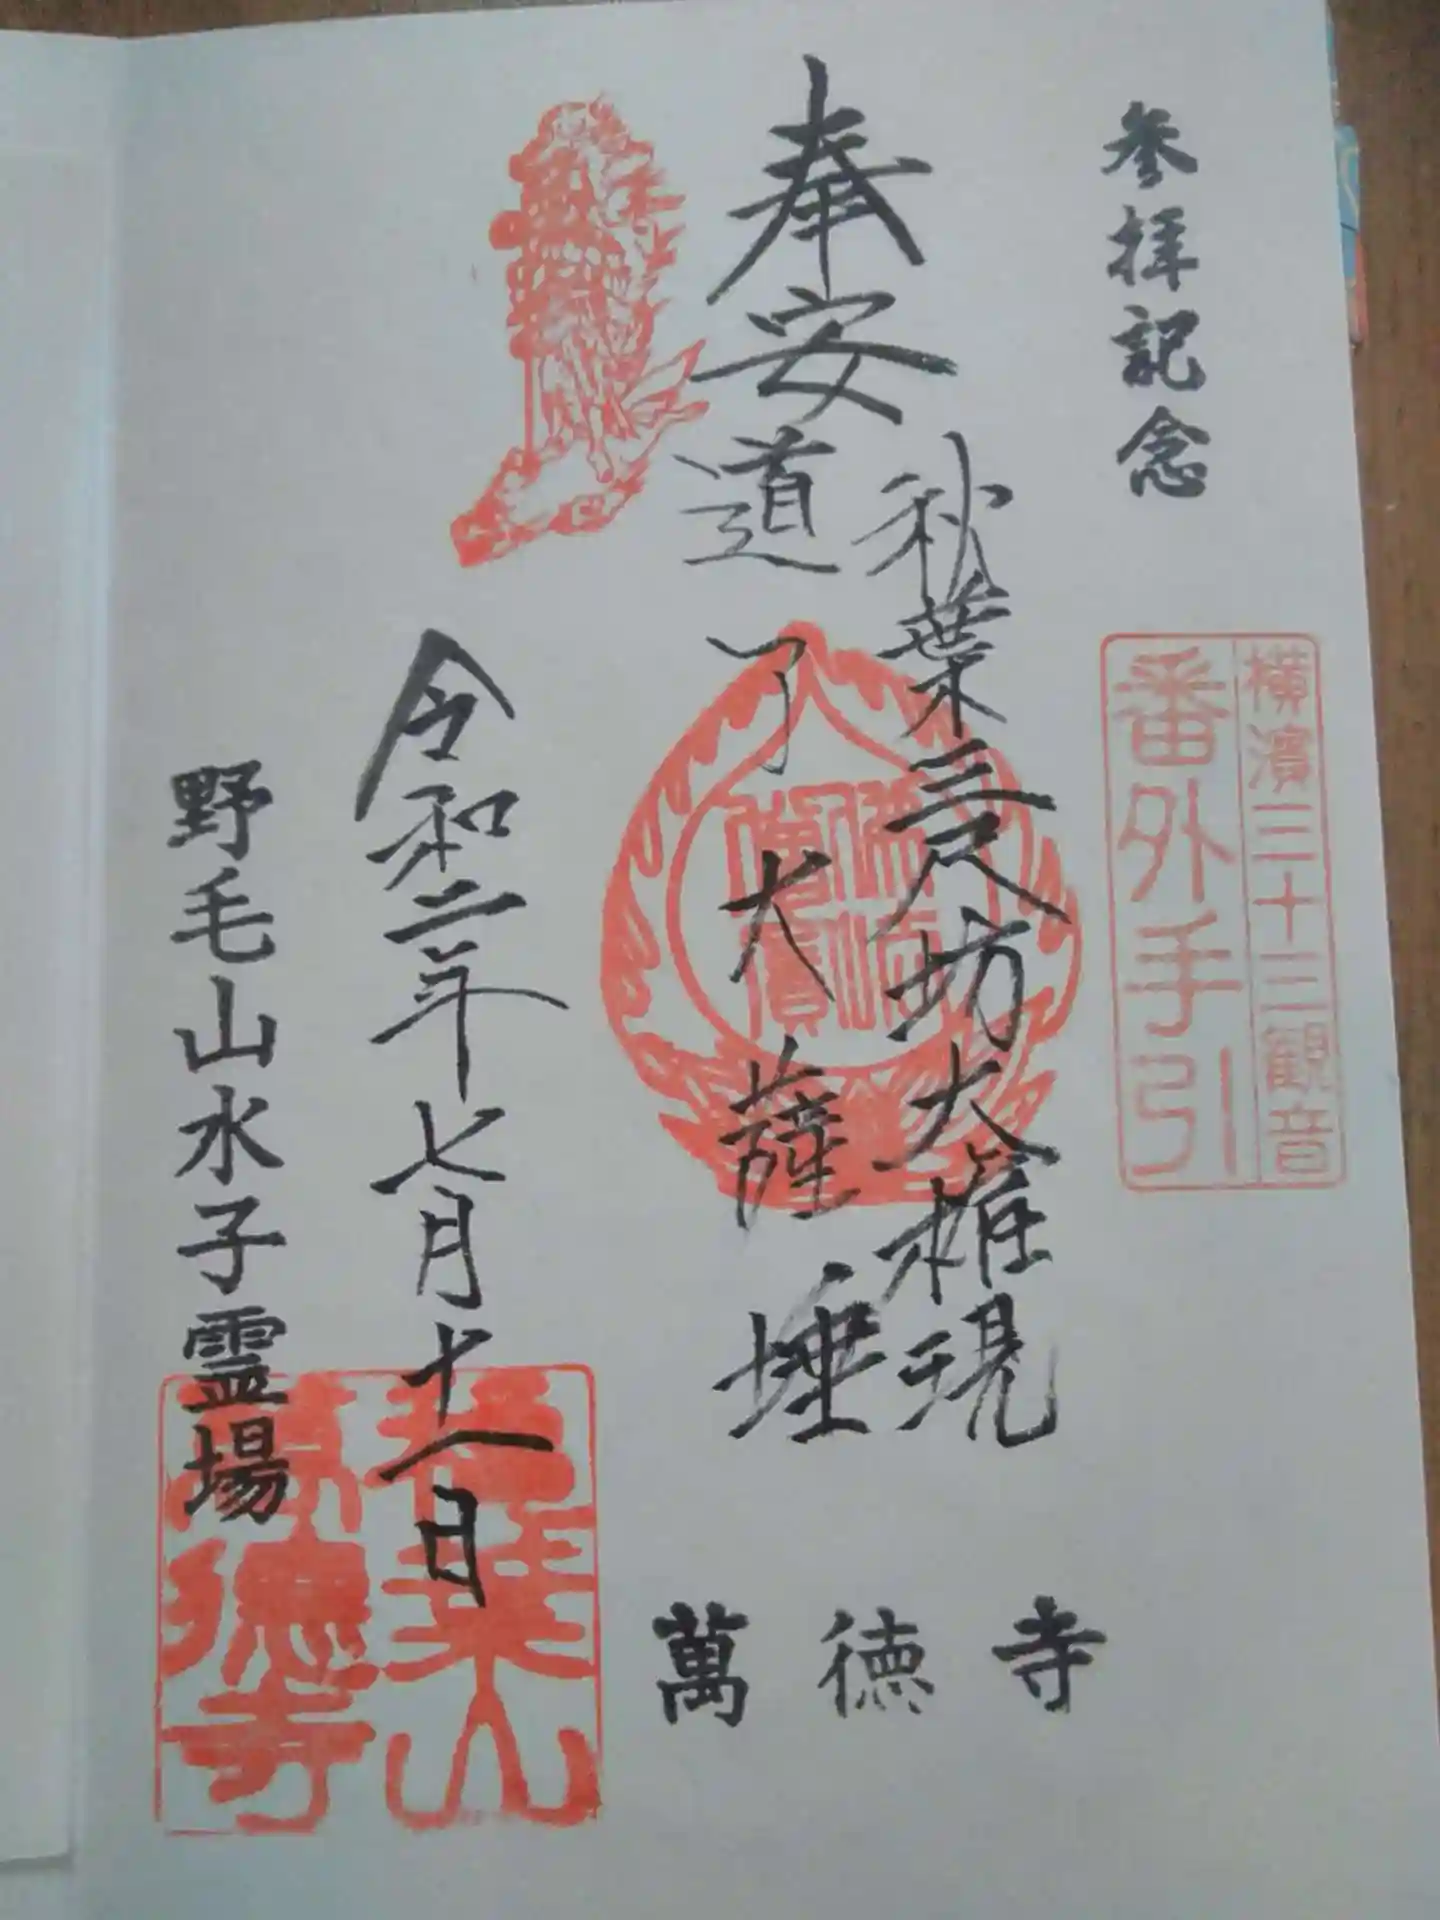 参拝記念
横濱三十三観音
番外手引
奉安
秋葉三尺坊大権現
道了大薩埵
佛法僧寳
令和二年七月十一日
野毛山水子霊場
秋葉山
萬德寺
萬徳寺